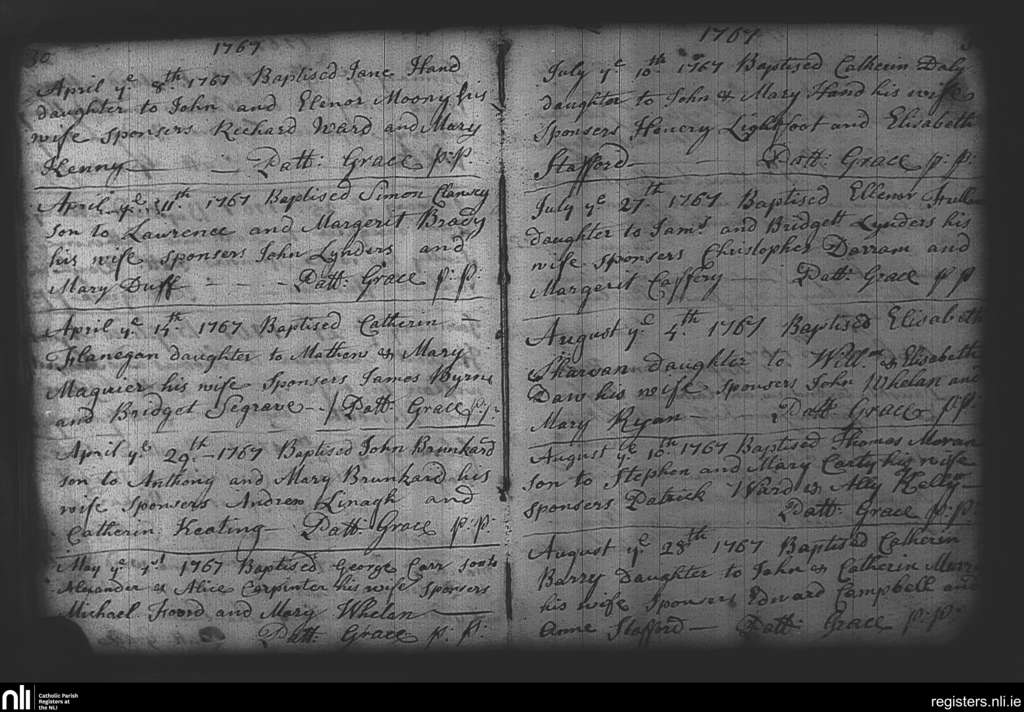 30
1767
April ye 8th 1767 Baptised Jane Hand
daughter to John and Elenor Moony his
wife sponsers Richard Ward and Mary
Kenny — Patt: Grace P:P
April ye 11th 1767 Baptised Simon Clansey
son to Lawrence and Margerit Brady
his wife sponsers John Lynders and
Mary Duff - - - Patt: Grace P:P:
April ye 14th 1767 Baptised Catherin
Flanegan daughter to Mathens & Mary
Maguier his wife Sponsers James Byrne
and Bridget Segrave — Patt Grace P:P:
April ye 29th 1767 Baptised John Brunkard
son to Anthony and Mary Brunkard his
wife sponsers Andrew Linagh and
Catherin Keating — Patt: Grace P:P:
May ye 1767 Baptised George Carr son to
Alexander & Alice Carpinter his wife Sponsers
Michael and Mary Whelan —
Patt: Grace P:P:
1767
July ye 10th 1767 Baptised Catherin Daly
daughter to John & Mary Hand his wife
Sponsers Henory Lightfoot and Elisabeth
Stafford — Patt: Grace P:P:
July ye 27th 1767 Baptised Ellenor
daughter to Jams and Bridgett Lynders his
wife sponsers Christopher Darram and
Margerit Caffery Patt: Grace PP
August ye 4th 1767 Baptised Elisabeth
Sharvan daughter to Willm & Elisabeth
Daw his wife sponsers John Whelan and
Mary Ryan — Patt Grace P:P:
August ye 10th 1767 Baptised Thomas Moran
son to Stephen and Mary Carty his wife
sponsers Patrick Ward & Ally Kelly —
Patt: Grace P:P:
August ye 28th 1767 Baptised Catherin
Barry Daughter to John & Catherin
his wife Sponsers Edward Campbell and
Anne Stafford — Patt: Grace P:P:
nli
Catholic Parish
Registers at
the NLI
registers.nli.ie